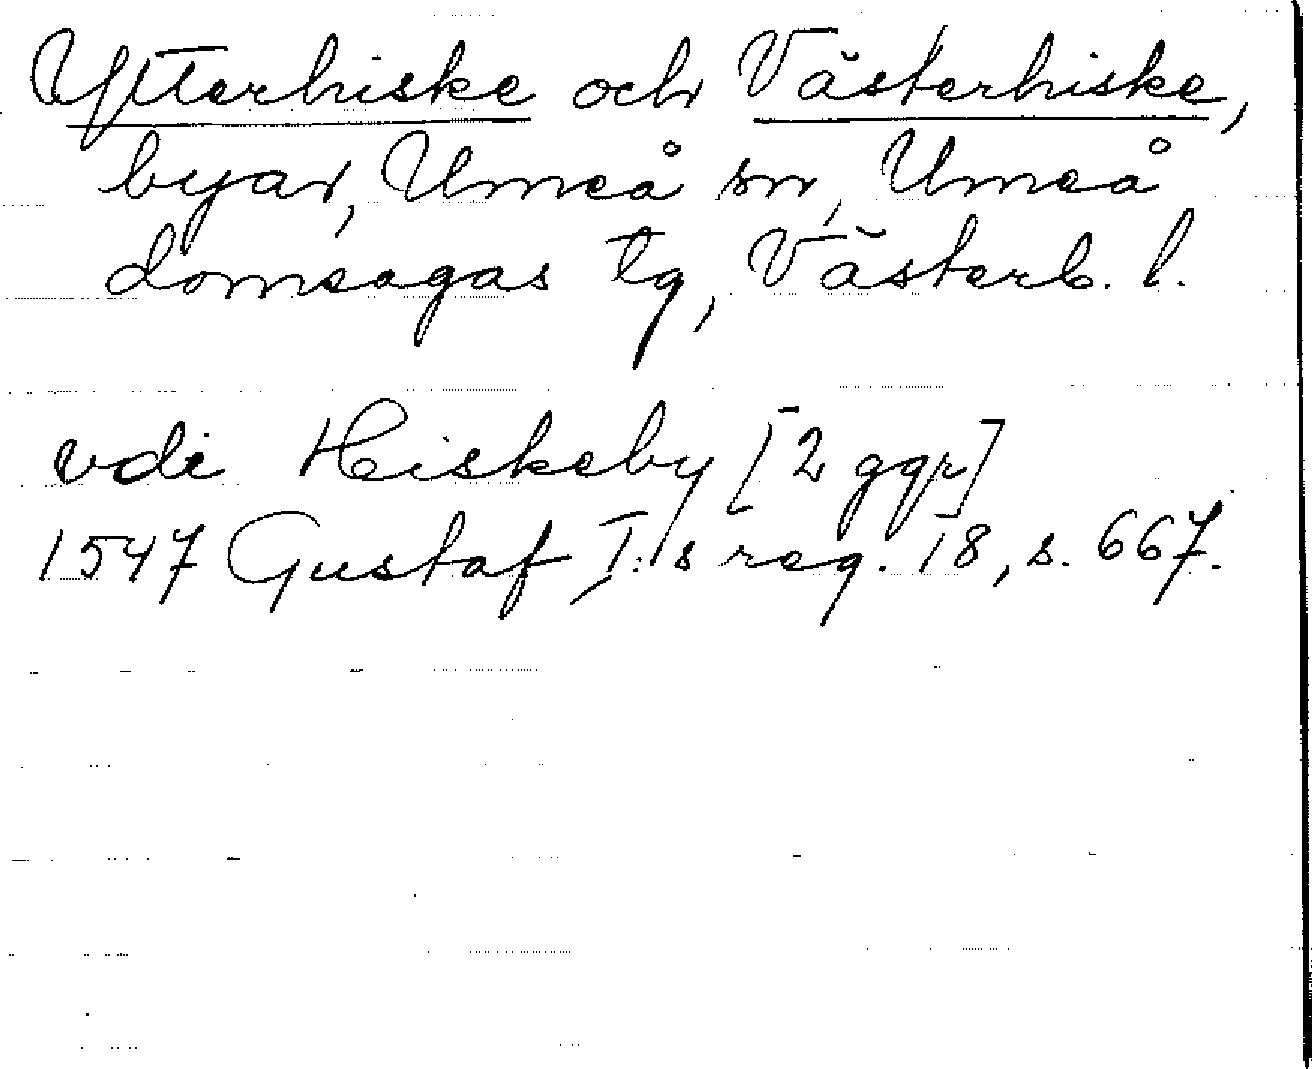 Ytterhiske och Västerhiske,
byar, Umeå sn, Umeå
domsagas tg, Västerb. l.
vdi Heiskeby [2 ggr]
1547 Gustaf I:s reg. 18, s. 667.